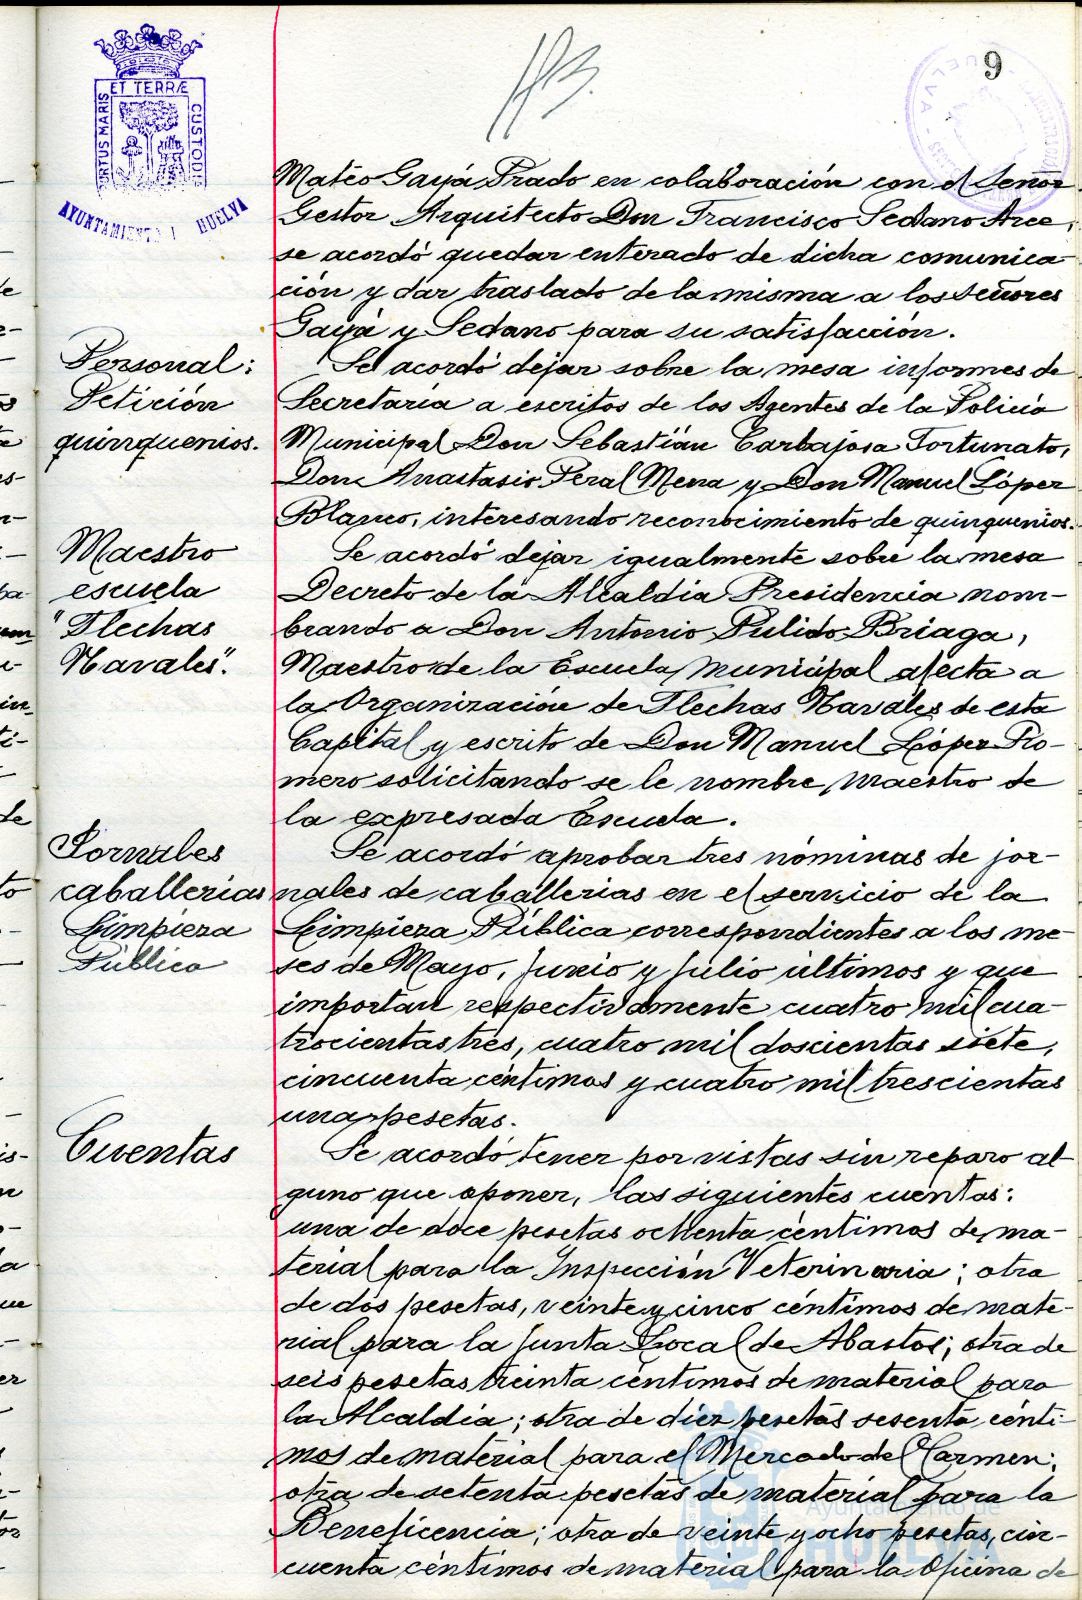 9
PORTUS MARIS
ET TERRÆ
CUSTODIA
AYUNTAMIENTO
HUELVA
HUELVA
Mateo Gayá Prado en colaboración con el Señor
Gestor Arquitecto Don Francisco Sedano Arce,
se acordó quedar enterado de dicha comunica-
ción y dar traslado de la misma a los señores
Gayá y Sedano para su satisfacción.
Personal:
Petición
quinquenios.
Se acordó dejar sobre la mesa informes de
Secretaría a escritos de los Agentes de la Policía
Municipal Don Sebastián Carbajosa Fortunato,
Don Anastasio Peral Mena y Don Manuel López
Blanco, interesando reconocimiento de quinquenios.
Maestro
escuela
"Flechas
Navales".
Se acordó dejar igualmente sobre la mesa
Decreto de la Alcaldía Presidencia nom-
brando a Don Antonio Pulido Briaga,
Maestro de la Escuela Municipal afecta a
la Organización de Flechas Navales de esta
Capital y escrito de Don Manuel López Ro-
mero solicitando se le nombre Maestro de
la expresada Escuela.
Jornales
caballerías
Limpieza
Pública
Se acordó aprobar tres nóminas de jor-
nales de caballerías en el servicio de la
Limpieza Pública correspondientes a los me-
ses de Mayo, Junio y Julio últimos y que
importan respectivamente cuatro mil cua-
trocientas tres, cuatro mil doscientas siete,
cincuenta céntimos y cuatro mil trescientas
una pesetas.
Cuentas
Se acordó tener por vistas sin reparo al-
guno que oponer, las siguientes cuentas:
una de doce pesetas ochenta céntimos de ma-
terial para la Inspección Veterinaria; otra
de dos pesetas, veinte y cinco céntimos de mate-
rial para la Junta Local de Abastos; otra de
seis pesetas treinta céntimos de material para
la Alcaldía; otra de diez pesetas sesenta cénti-
mos de material para el Mercado del Carmen;
otra de setenta pesetas de material para la
Beneficencia; otra de veinte y ocho pesetas, cin-
cuenta céntimos de material para la Oficina de
Ayuntamiento de
HUELVA